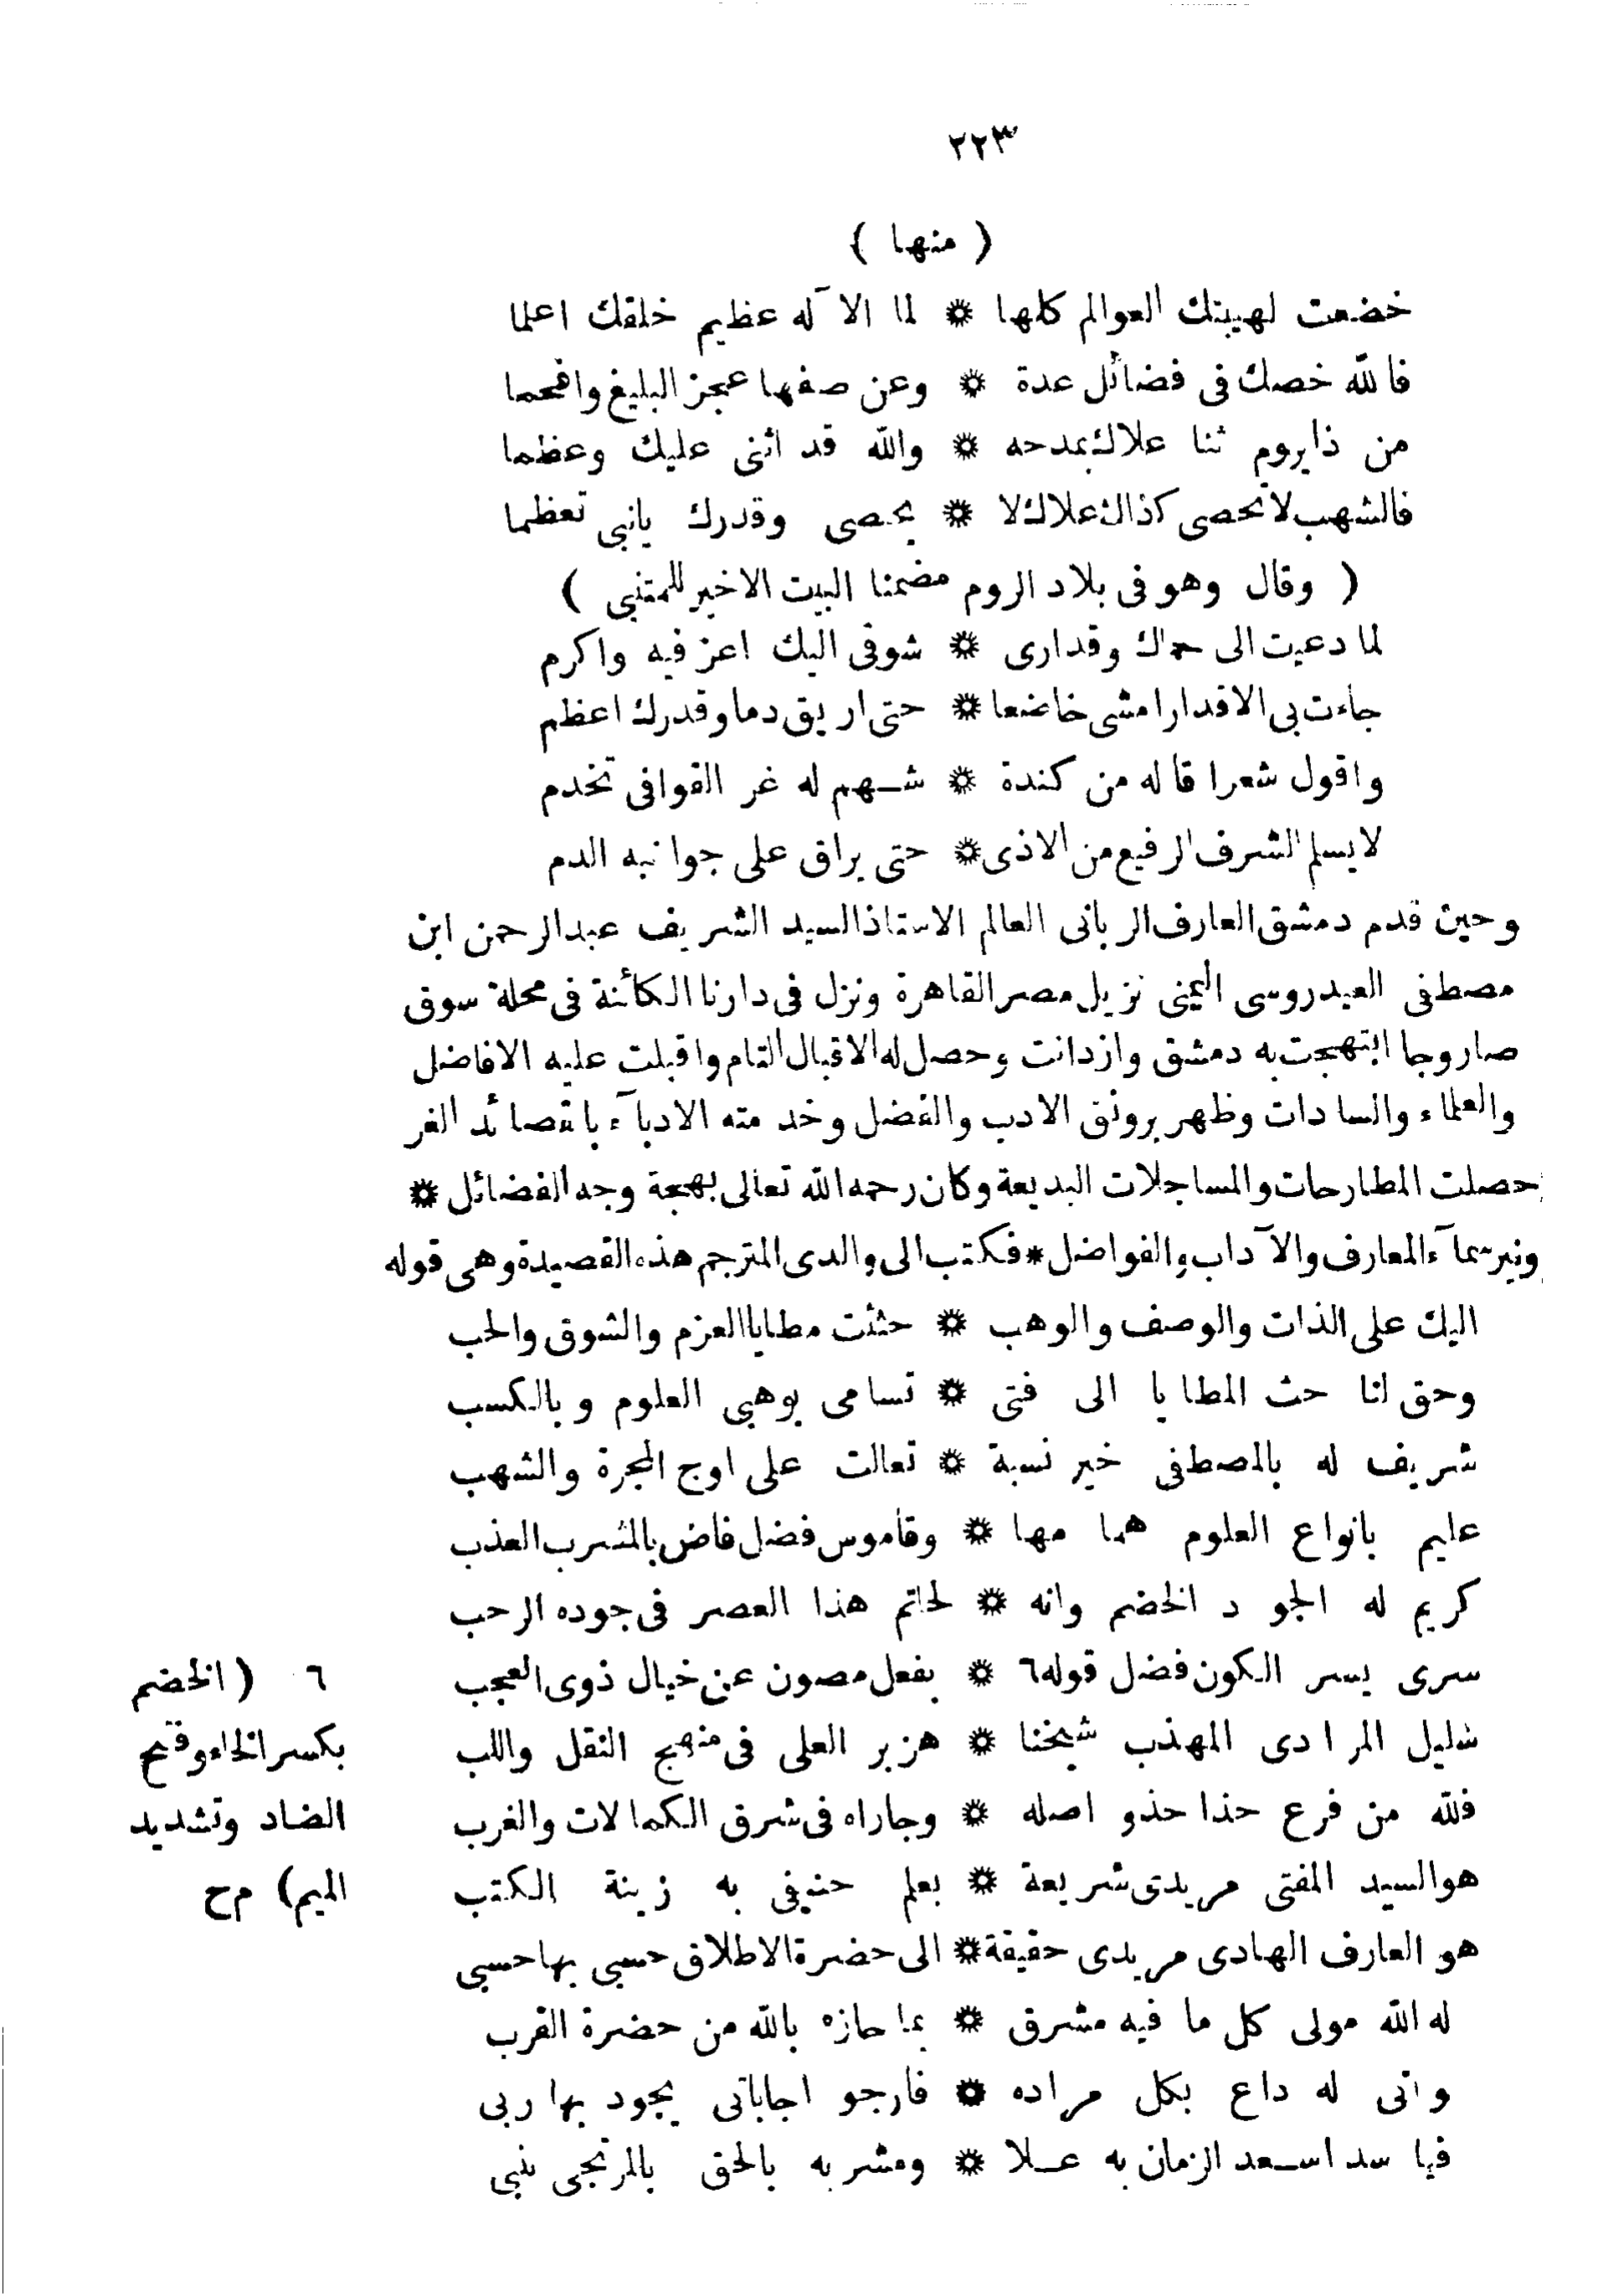 ٢٢٣
( منها )
خضعت لهيبتك العوالم كلها * لما الا آله عظيم خلقك اعلما
فالله خصك فى فضائل عدة * وعن صفها عجز البليغ وافحما
من ذا يروم ثنا علاك بمدحه * والله قد اثنى عليك وعظما
فالشهب لا تحصى كذاك علاك لا * يحصى وقدرك يانبى تعظما
( وقال وهو فى بلاد الروم مضمنا البيت الاخير للمتنبى )
لما دعيت الى حماك وقدارى * شوقى اليك اعز فيه واكرم
جاءت بى الاقدار امشى خاضعا * حتى اريق دما وقدرك اعظم
واقول شعرا قاله من كندة * شهم له غر القوافى تخدم
لا يسلم الشرف الرفيع من الاذى * حتى يراق على جوانبه الدم
وحين قدم دمشق العارف الربانى العالم الاستاذ السيد الشريف عبدالرحمن ابن
مصطفى العيدروسى اليمنى نزيل مصر القاهرة ونزل فى دارنا الكائنة فى محلة سوق
صاروجا ابتهجت به دمشق وازدانت وحصل له الاقبال التام واقبلت عليه الافاضل
والعلماء والسادات وظهر برونق الادب والفضل وخدمته الادبآء بالقصائد الغر
وحصلت المطارحات والمساجلات البديعة وكان رحمه الله تعالى بهجة وجه الفضائل *
ونير سمآء المعارف والآداب والفواضل * فكتب الى والدى المترجم هذه القصيدة وهى قوله
اليك على الذات والوصف والوهب * حثثت مطايا العزم والشوق والحب
وحق لنا حث المطايا الى فتى * تسامى بوهبى العلوم وبالكسب
شريف له بالمصطفى خير نسبة * تعالت على اوج المجرة والشهب
عليم بانواع العلوم همامها * وقاموس فضل فاض بالمشرب العذب
كريم له الجود الخضم وانه * لحاتم هذا العصر فى جوده الرحب
سرى بسر الكون فضل قوله ٦ * بفعل مصون عن خيال ذوى العجب
سليل المرادى المهذب شيخنا * هزبر العلى فى منهج النقل واللب
فلله من فرع حذا حذو اصله * وجاراه فى شرق الكمالات والغرب
هو السيد المفتى مريدى شريعة * بعلم حنيفى به زينة الكتب
هو العارف الهادى مريدى حقيقة * الى حضرة الاطلاق حسبى بها حسبى
له الله مولى كل ما فيه مشرق * بما حازه بالله من حضرة القرب
وانى له داع بكل مراده * فارجو اجاباتى يجود بها ربى
فيا سدا سعد الزمان به علا * ومشربه بالحق بالمرتجى ينبى
٦ ( الخضم
بكسر الخاء وفتح
الضاد وتشديد
الميم) م ح